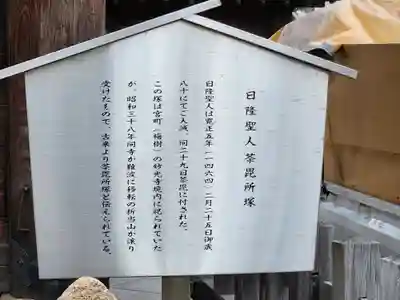 日隆聖人荼毘所塚
日隆聖人は寛正五年(一四六四)二月二十五日御歳
八十にてご入滅、同二十九日荼毘に付された。
この塚は宮町(梅樹)の妙光寺境内に祀られていた
が、昭和三十八年同寺が難波に移転の折当山が譲り
受けたもので、古来より荼毘所塚と伝えられている。